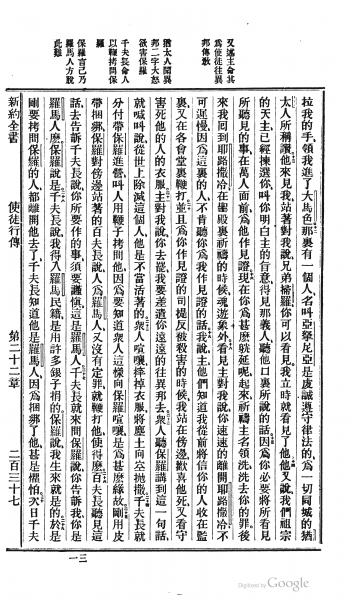 又述主命其
爲使徒往異
邦傳教
猶太人聞異
邦二字大怒
欲害保羅
千夫長命人
以鞭拷問保
羅
保羅言己乃
羅馬人方脫
此難
拉我的手、領我進了大馬色、那裏有一個人、名叫亞拏尼亞、是虔誠遵守律法的、爲一切同城的猶
太人所稱讚、他來見我、站著對我說、兄弟掃羅、你可以看見、我立時就看見了他、他又說、我們祖宗
的天主、已經揀選你、叫你明白主的旨意、得見那義人、聽他口裏所說的話、因爲你必要將所看見
所聽見的事、在萬人面前、爲他作見證、現在你爲甚麽躭延呢、起來祈禱主名、領洗、洗去你的罪、後
來我回到耶路撒冷、在聖殿裏祈禱的時候、魂遊象外、看見主對我說、你速速的離開耶路撒冷、不
可遲慢、因爲這裏的人、不肯聽你爲我作見證的話、我說、主、他們知道我從前將信你的人、收在監
裏、又在各會堂裏鞭打、並且爲你作見證的司提反被殺害的時候、我站在傍邊、歡喜他死、又看守
害死他的人的衣服、主對我說、你去罷、我要差遣你遠遠的往異邦去、衆人聽保羅講到這一句話、
就喊叫說、從世上除滅這個人、他是不當活著的、衆人喧嚷、摔掉衣服、將塵土向空抛撒、千夫長就
分付帶保羅進營、叫人用鞭子拷問他、因爲要知道衆人這樣向保羅喧嚷、是爲甚麽緣故、剛用皮
帶捆綁、保羅對傍邊站著的百夫長說、人爲羅馬人、又沒有定罪、就鞭打他、使得麽、百夫長聽見這
話、去告訴千夫長說、你所要作的事、須要謹愼、這是羅馬人、千夫長就來問保羅說、你告訴我、你是
羅馬人麽、保羅說是、千夫長說、我得入羅馬民籍、是用許多銀子捐的、保羅說、我生來就是的、於是
剛要拷問保羅的人、都離開他去了、千夫長知道他是羅馬人、因爲捆綁了他、甚是懼怕、次日千夫
新約全書 使徒行傳 第二十二章 二百三十七
三一
Digitized by Google